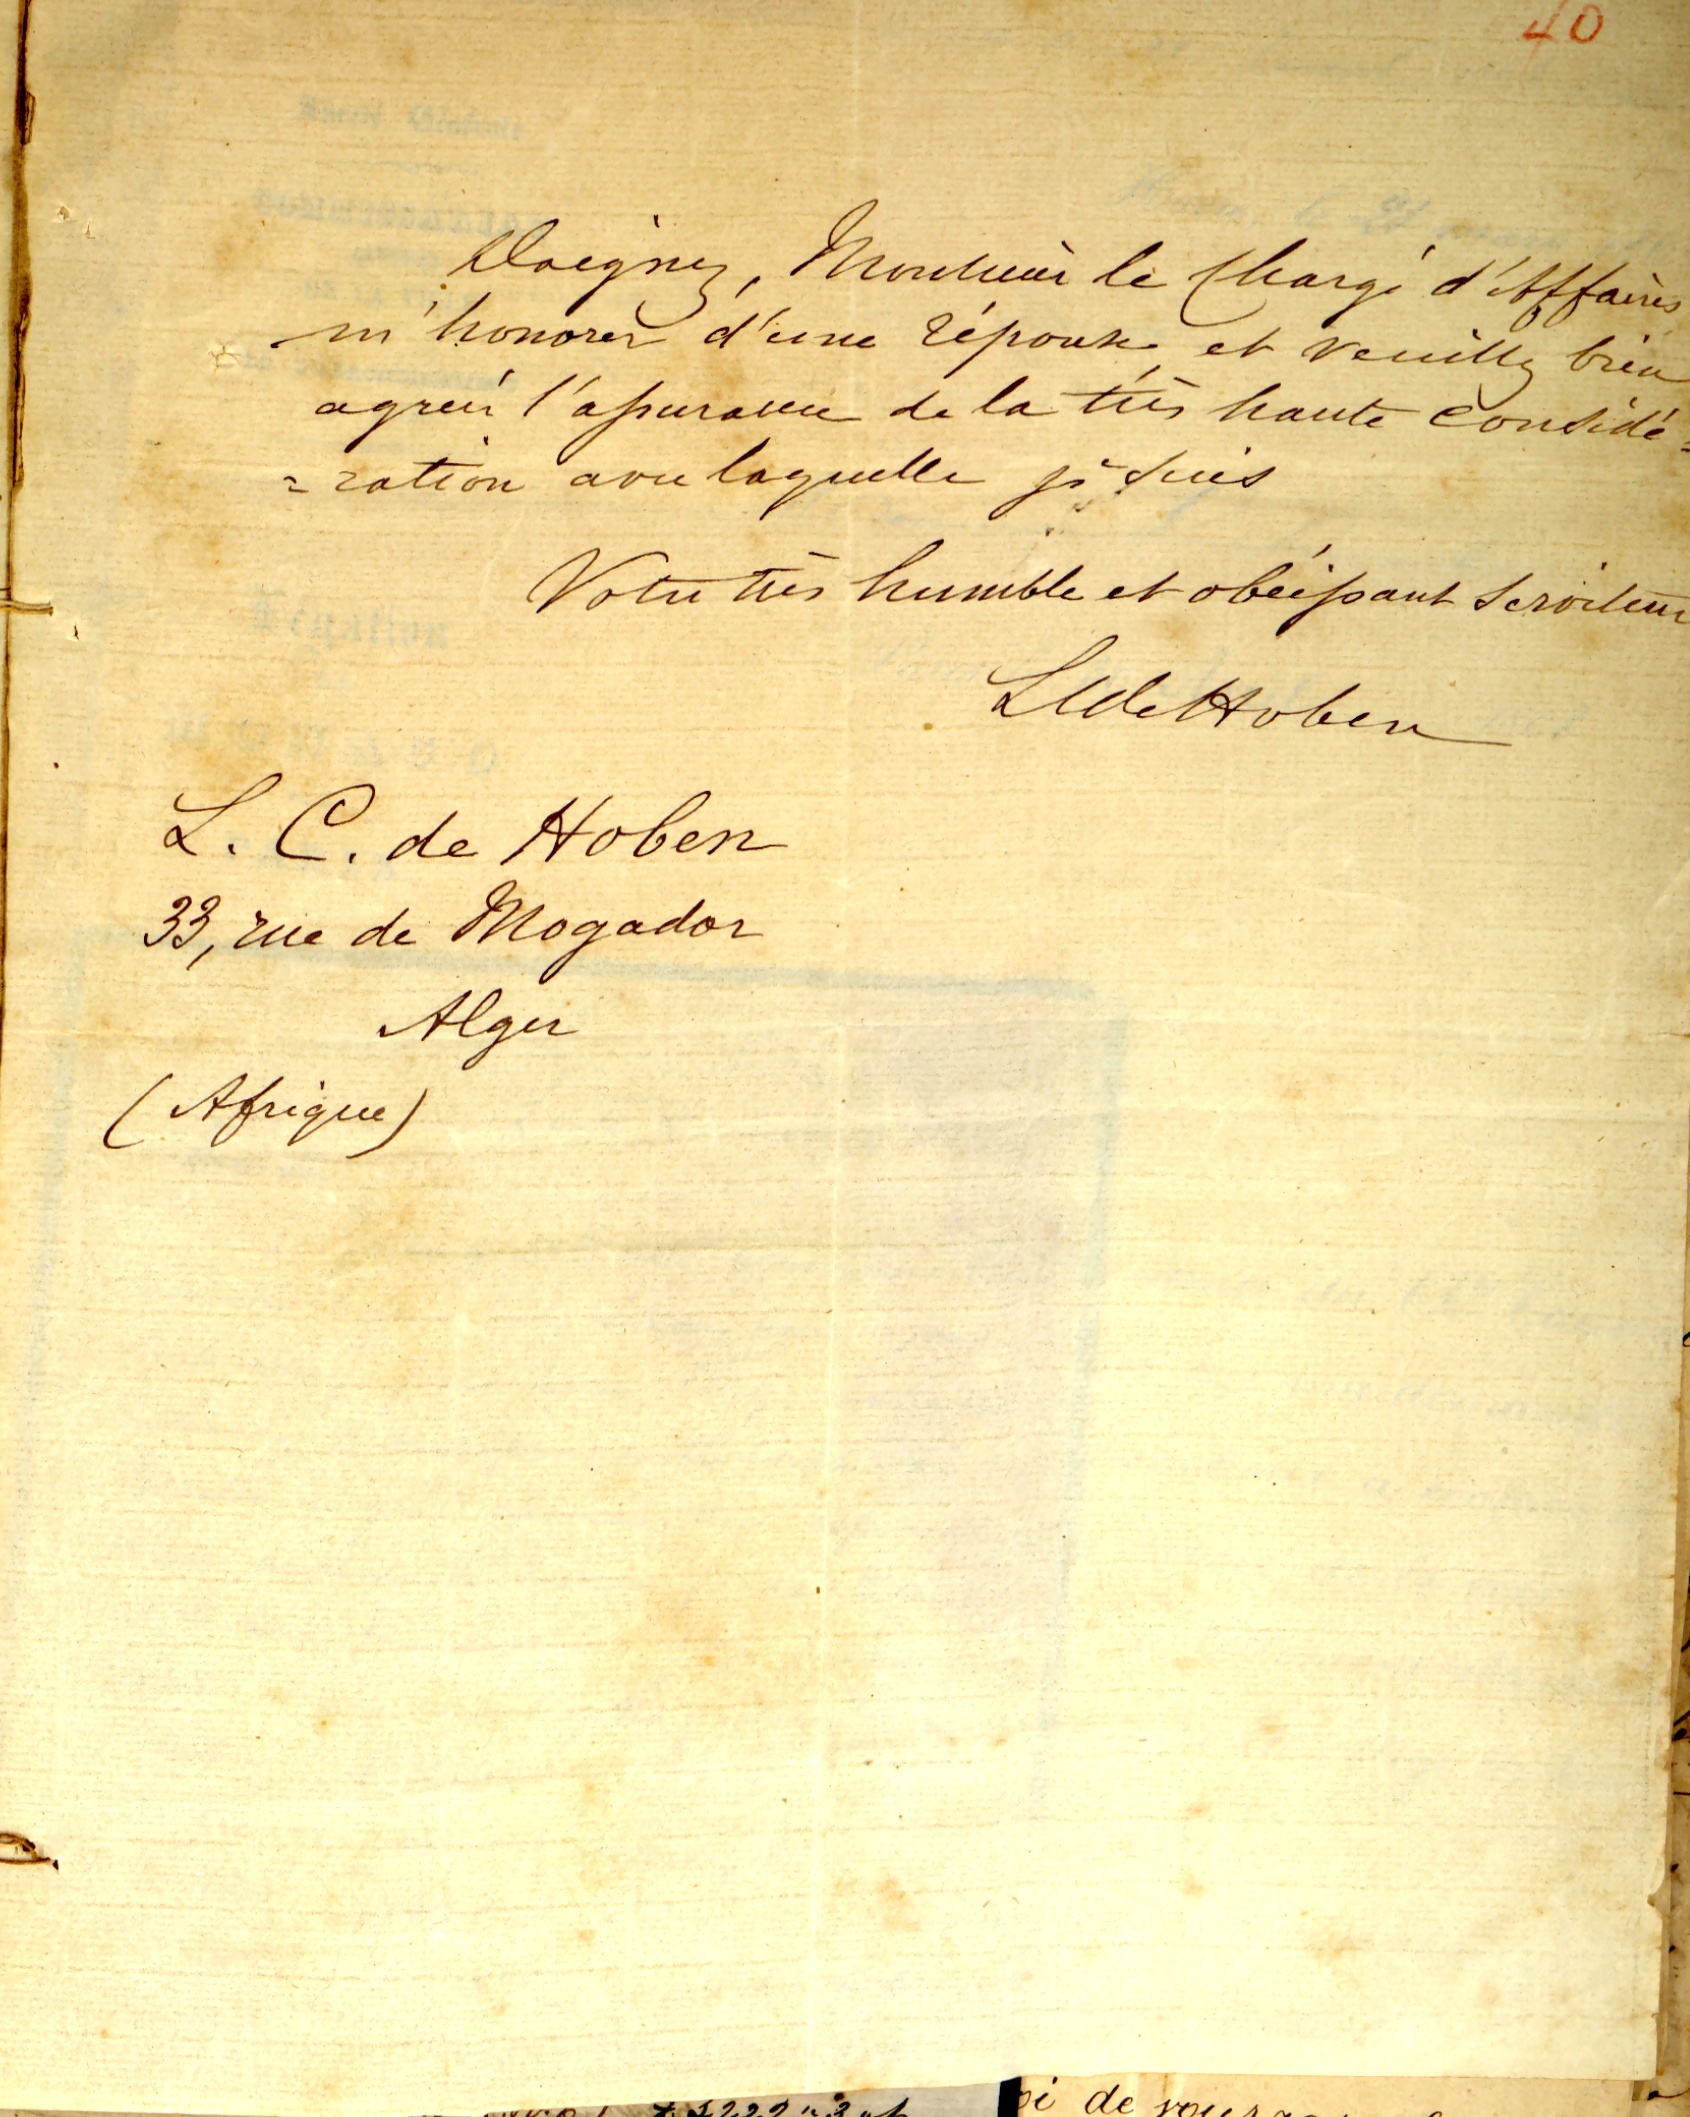 40
Daignez, Monsieur le Chargé d'Affaires,
m'honorer d'une réponse et veuillez bien
agréer l'assurance de la très haute considé=
=ration avec laquelle je suis
Votre très humble et obéissant serviteur
LCdeHoben
L. C. de Hoben
33, rue de Mogador
Alger
(Afrique)